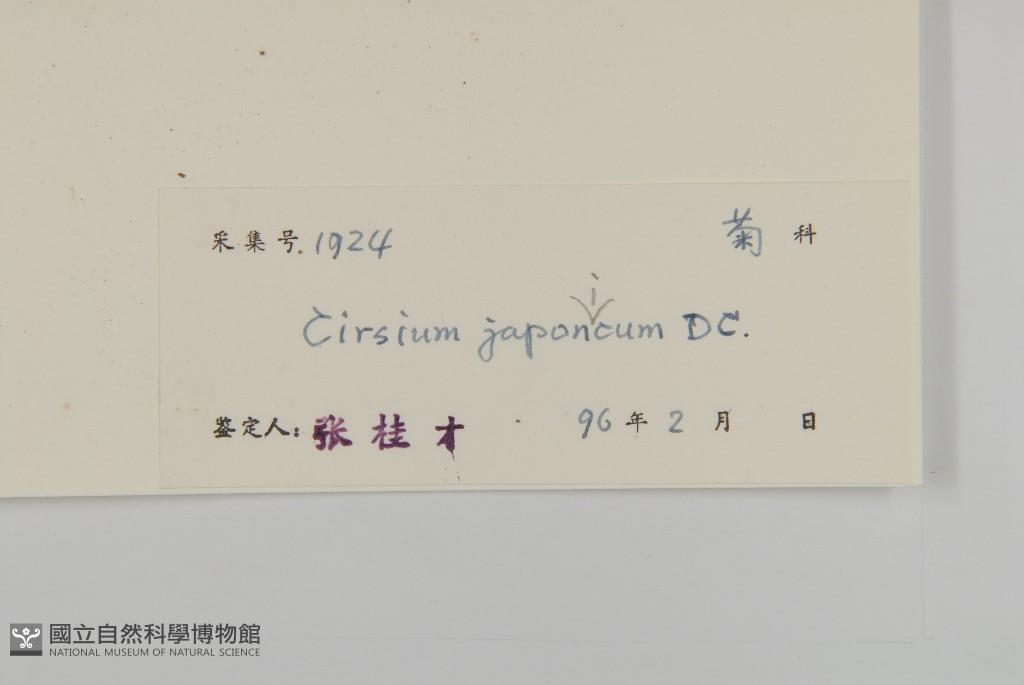 采集号. 1924 菊 科
Cirsium japonicum DC.
鉴定人: 张桂才 96 年 2 月 日
國立自然科學博物館
NATIONAL MUSEUM OF NATURAL SCIENCE